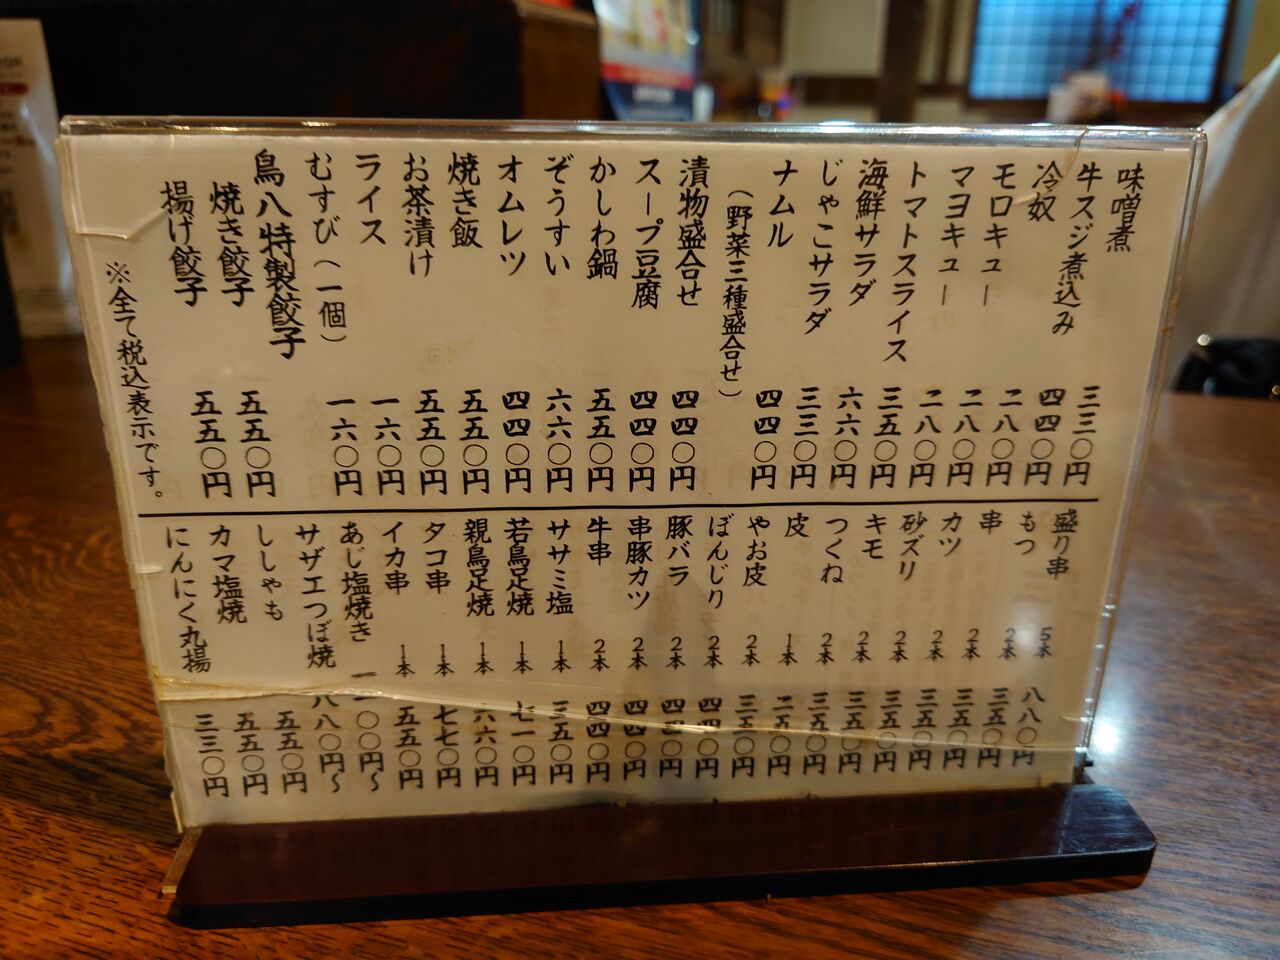 味噌煮 三三〇円
牛スジ煮込み 四四〇円
冷奴 二八〇円
モロキュー 二八〇円
マヨキュー 二八〇円
トマトスライス 三五〇円
海鮮サラダ 六六〇円
じゃこサラダ 三三〇円
ナムル 四四〇円
（野菜三種盛合せ）
漬物盛合せ 四四〇円
スープ豆腐 四四〇円
かしわ鍋 五五〇円
ぞうすい 六六〇円
オムレツ 四四〇円
焼き飯 五五〇円
お茶漬け 五五〇円
ライス 一六〇円
むすび（一個） 一六〇円
鳥八特製餃子
焼き餃子 五五〇円
揚げ餃子 五五〇円
※全て税込表示です。
盛り串 5本 八八〇円
もつ 2本 三五〇円
串 2本 三五〇円
カツ 2本 三五〇円
砂ズリ 2本 三五〇円
キモ 2本 三五〇円
つくね 2本 三五〇円
皮 1本 二五〇円
やお皮 2本 三五〇円
ぼんじり 2本 四四〇円
豚バラ 2本 四四〇円
串豚カツ 2本 四四〇円
牛串 2本 四四〇円
ササミ塩 1本 三五〇円
若鳥足焼 1本 七一〇円
親鳥足焼 1本 六六〇円
タコ串 1本 七七〇円
イカ串 1本 五五〇円
あじ塩焼き 一一〇〇円〜
サザエつぼ焼 八八〇円〜
ししゃも 五五〇円
カマ塩焼 五五〇円
にんにく丸揚 三三〇円